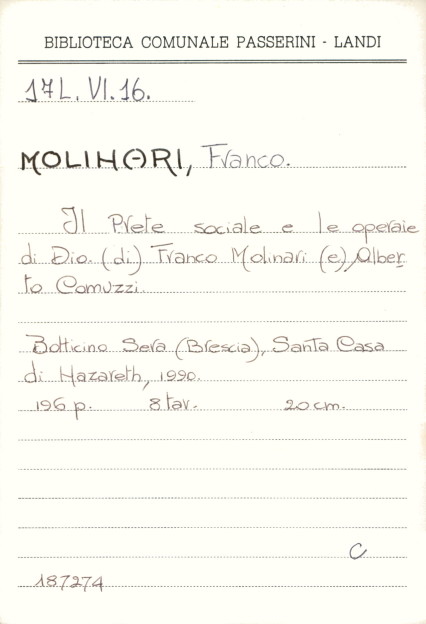 BIBLIOTECA COMUNALE PASSERINI - LANDI
17L.VI.16.
MOLINARI, Franco.
Il Prete sociale e le operaie
di Dio. (di) Franco Molinari (e) Alber
to Comuzzi.
Botticino Sera (Brescia), Santa Casa
di Nazareth, 1990.
196 p. 8 tav. 20 cm.
C
187274